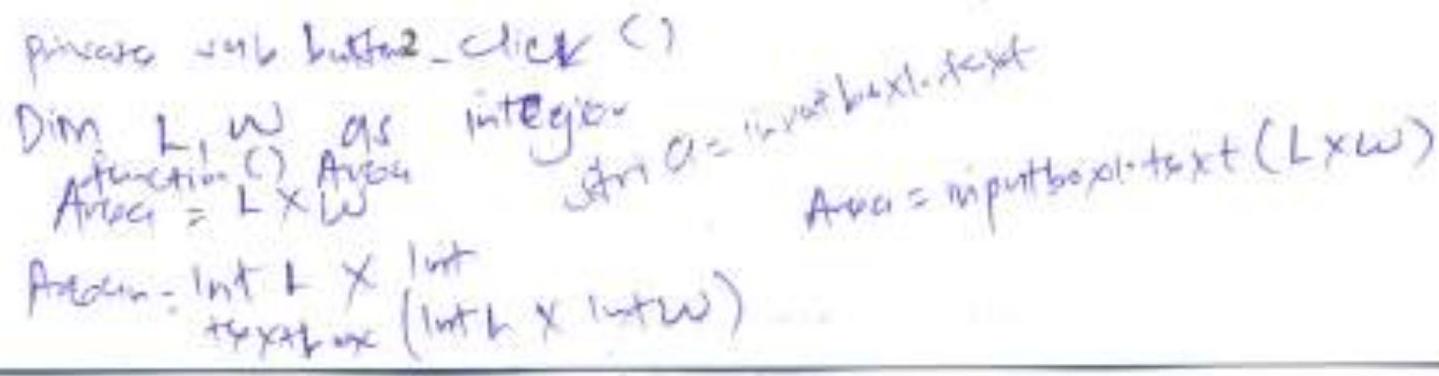 private sub button2_click ()
Dim L, W as integer
function () Area
Area = L X W
str a = inputbox1.text
Area = inputbox1.text (L X W)
Int L X Int
textbox (Int L X Int W)